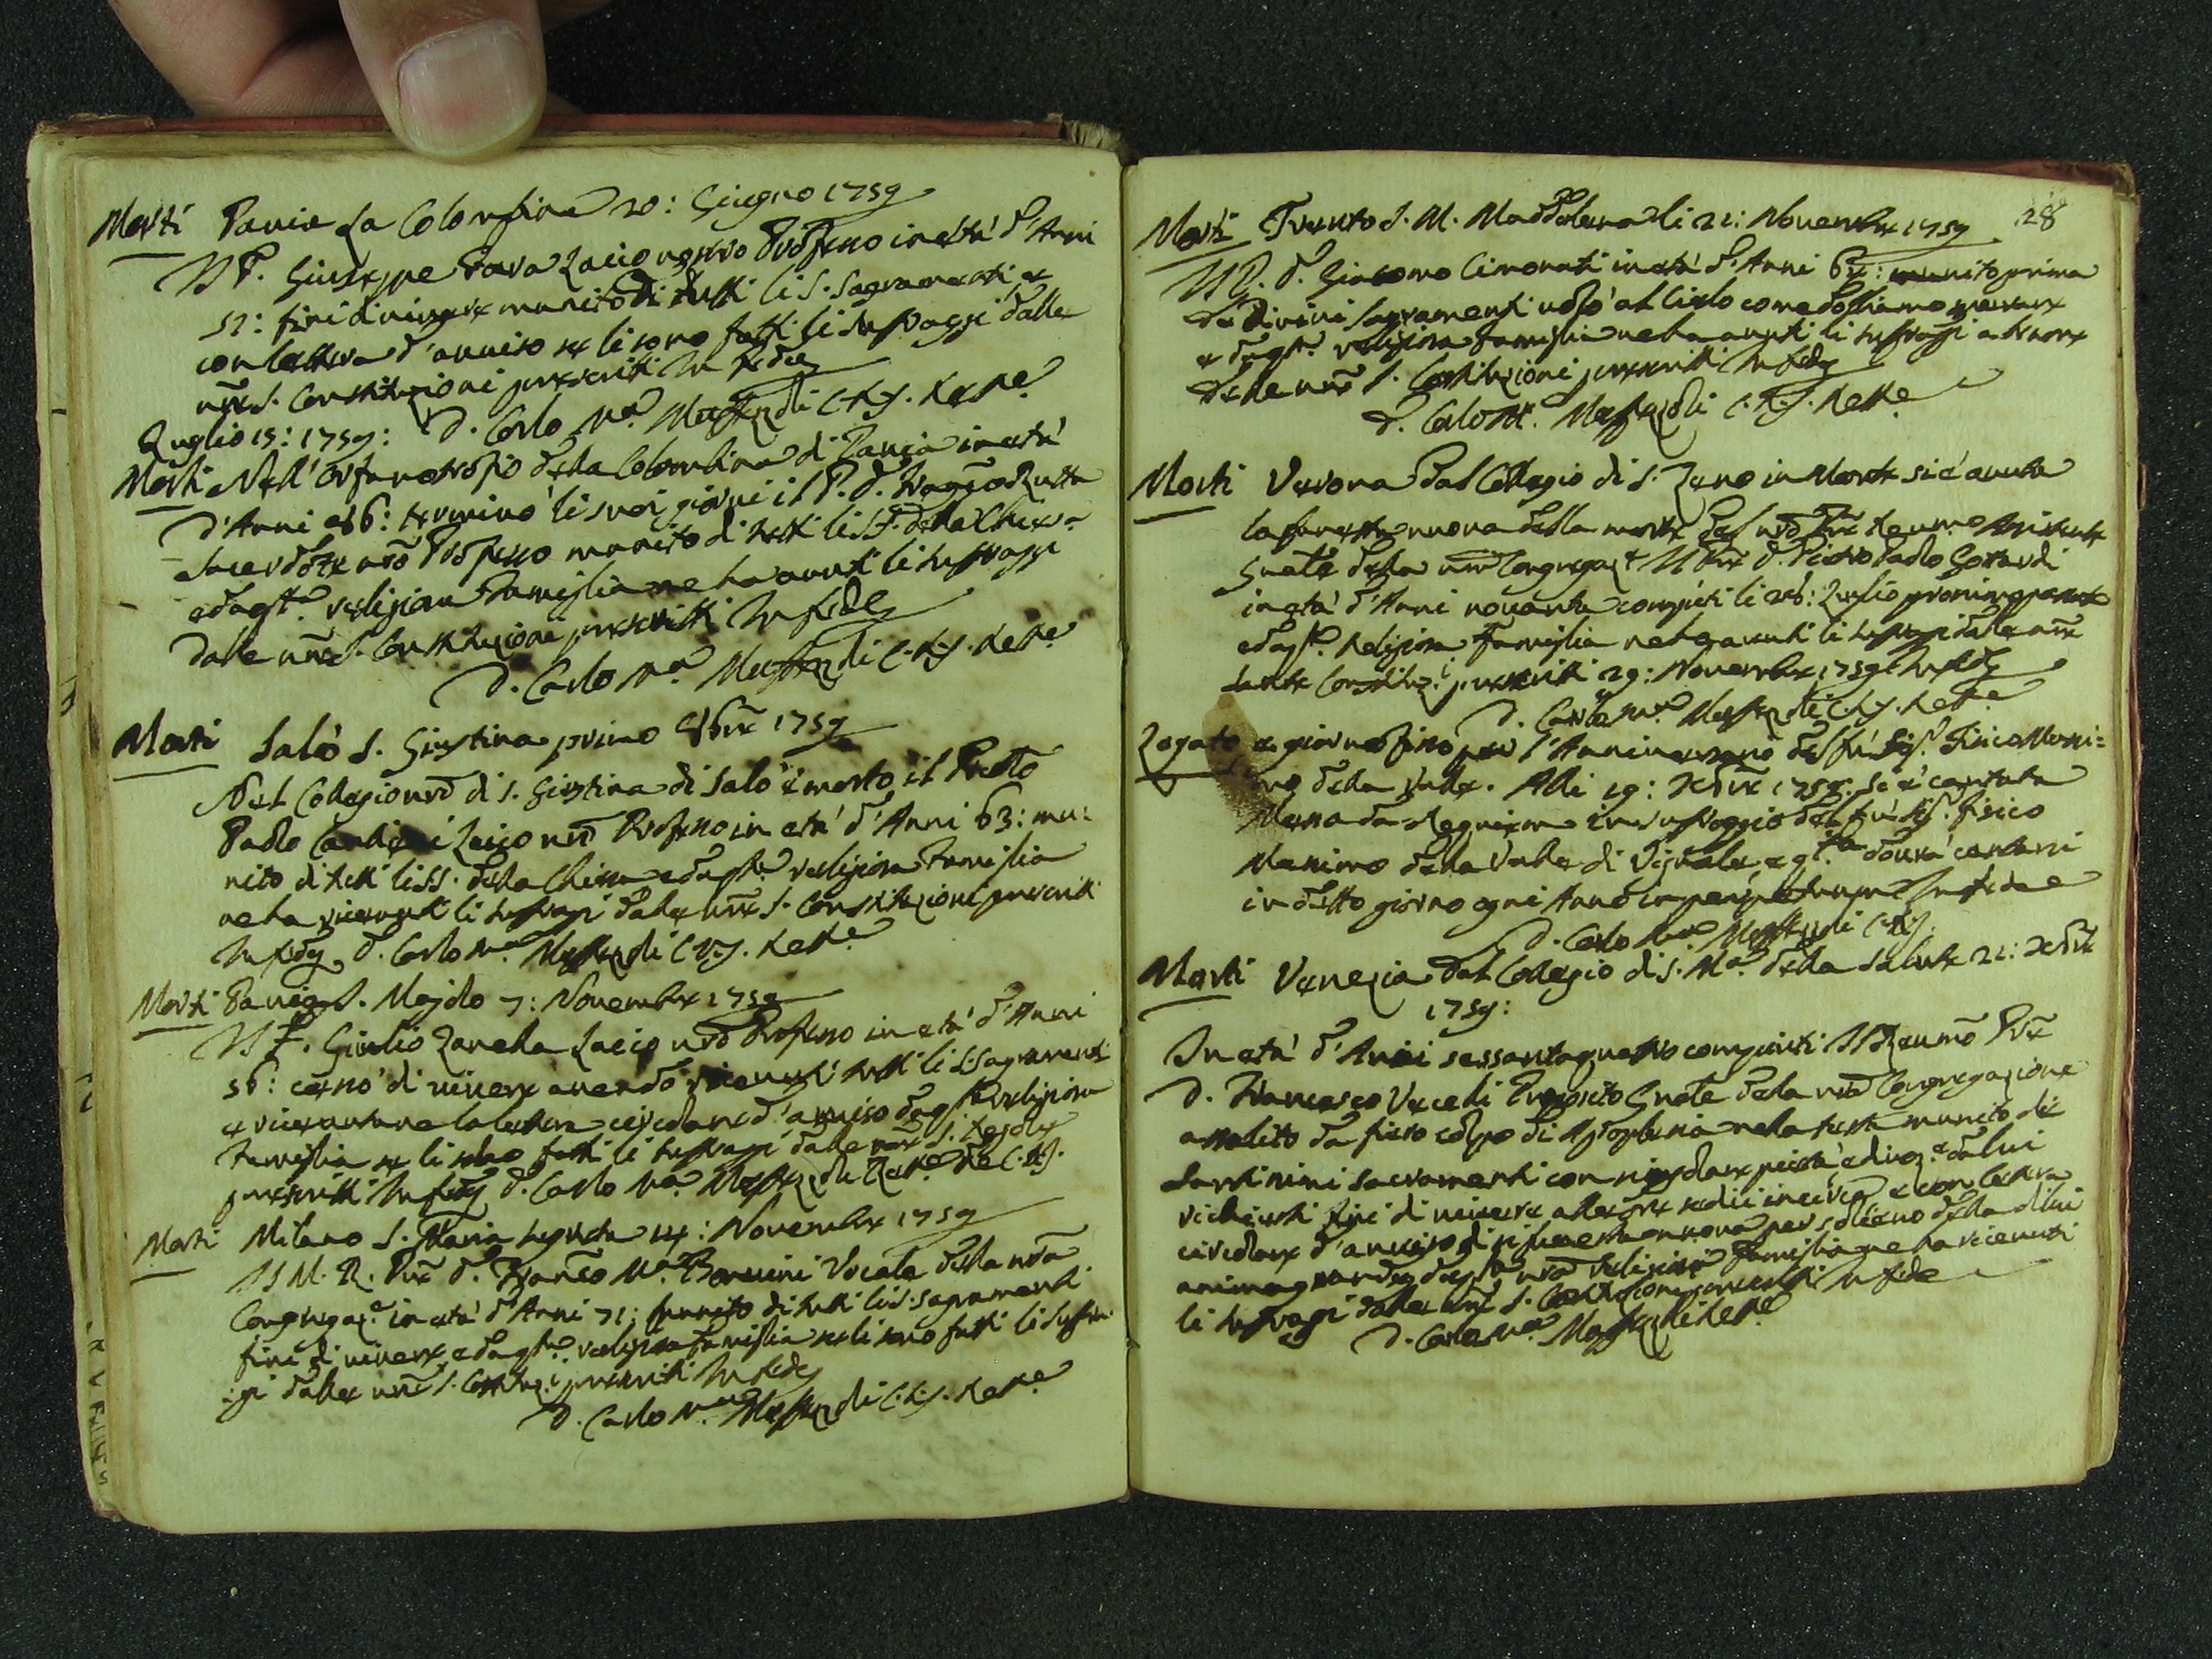 Morti Pavia La Colombina 20: Giugno 1759
Il F. Giuseppe Laico nostro Professo in età d'Anni
52: finì di vivere munito di tutti li S. Sagramenti, e
con lettera d'avviso se li sono fatti li suffraggi dalle
nr̃e S. Constituzioni prescritti In fede
D. Carlo Ma. C.R.S. Rettre
Luglio 15: 1759:
Morti Nell' Orfanotrofio della Colombina di Pavia in età
d'Anni terminò li suoi giorni il P. D.
Sacerdote nrõ Professo munito di tutti li SS. della Chiesa
e da qsta religiosa Famiglia ne ha avuti li suffraggi
dalle nr̃e S. Constituzioni prescritti In fede
D. Carlo Ma. C.R.S. Rettre
Morti Salò S. Giustina primo 1759
Nel Collegio nrõ di S. Giustina di Salò è morto il
Paolo Laico nrõ Professo in età d'Anni 63: mu:
nito di tutti li SS. della Chiesa e da qsta religiosa Famiglia
ne ha ricevuti li suffragi dalle nr̃e S. Constituzioni prescritti
In fede D. Carlo Ma. C.R.S. Rettre
Morti Pavia S. Majolo 7: Novembre 1759
Il F. Giulio Zanella Laico nrõ Professo in età d'Anni
56: cessò di vivere avendo ricevuti tutti li S. Sagramenti
e ricevutane la lettera circolare d'avviso da qsta religiosa
Famiglia se li sono fatti li suffragi dalle nr̃e S. Regole
prescritti In fede D. Carlo Ma. Rettre C.R.S.
Morti Milano S. Maria Segreta 14: Novembre 1759
Il M. R. Prẽ D. Franco Ma. Vocale della nrã
Congregaze in età d'Anni 71: munito di tutti li S. Sagramenti
finì di vivere, e da qsta religiosa famiglia se li sono fatti li suffra:
:gi dalle nr̃e S. Constituzi prescritti In fede
D. Carlo Ma. C.R.S. Rettre
28
Morti Trento S. M. Maddalena li 21: Novembre 1759
Il P. D. Giacomo Cimonati in età d'Anni munito prima
de divini Sagramenti volò al Cielo come dobbiamo sperare
e da qsta religiosa famiglia ne ha avuti li suffragi a tenore
delle nr̃e S. Constituzioni prescritti In fede
D. Carlo M. C.R.S. Rettre
Morti Verona Dal Collegio di S. Zeno in Monte si è avuta
la funesta nuova della morte del nrõ Prẽ Revmo Assistente
Gnãle della nrã Congregaz. Il Prẽ D. Pietro Paolo Gottardi
in età d'Anni novanta compiuti li 26: Luglio prossimo passato
e da qsta Religiosa Famiglia ne ha avuti li suffragi dalle nr̃e
Sante Constituzi prescritti 29: Novembre 1759 In fede
D. Carlo Ma. C.R.S. Rettre
Legato e giorno fisso per l'Anniversario del fù Sigr. Fisico Massi:
mo della Valle. Alli 19: Xbrẽ 1759. Si è cantata
Messa da Requiem in suffraggio del fù Sigr. fisico
Massimo della Valle di Vignale, e qsta dovrà cantarsi
in detto giorno ogni Anno in perpetuum In fede
D. Carlo Ma. C.R.S.
Morti Venezia Dal Collegio di S. Ma. della Salute 21: Xbrẽ
1759:
In età d'Anni sessantaquattro compiuti Il Revmõ Prẽ
D. Francesco Vecelli Preposito Gnãle della nrã Congregazione
assalito da fiero colpo di Apoplesia nella testa munito di
Santissimi Sacramenti con singolare pietà, e divoze da lui
richiesti finì di vivere alle ore sedici in circa e con lettera
circolare d'avviso di sì funesta nuova per sollievo della di lui
anima grande da qsta nrã Religiosa Famiglia ne ha ricevuti
li suffragi dalle nr̃e S. Constituzioni prescritti In fede
D. Carlo Ma. Rettre